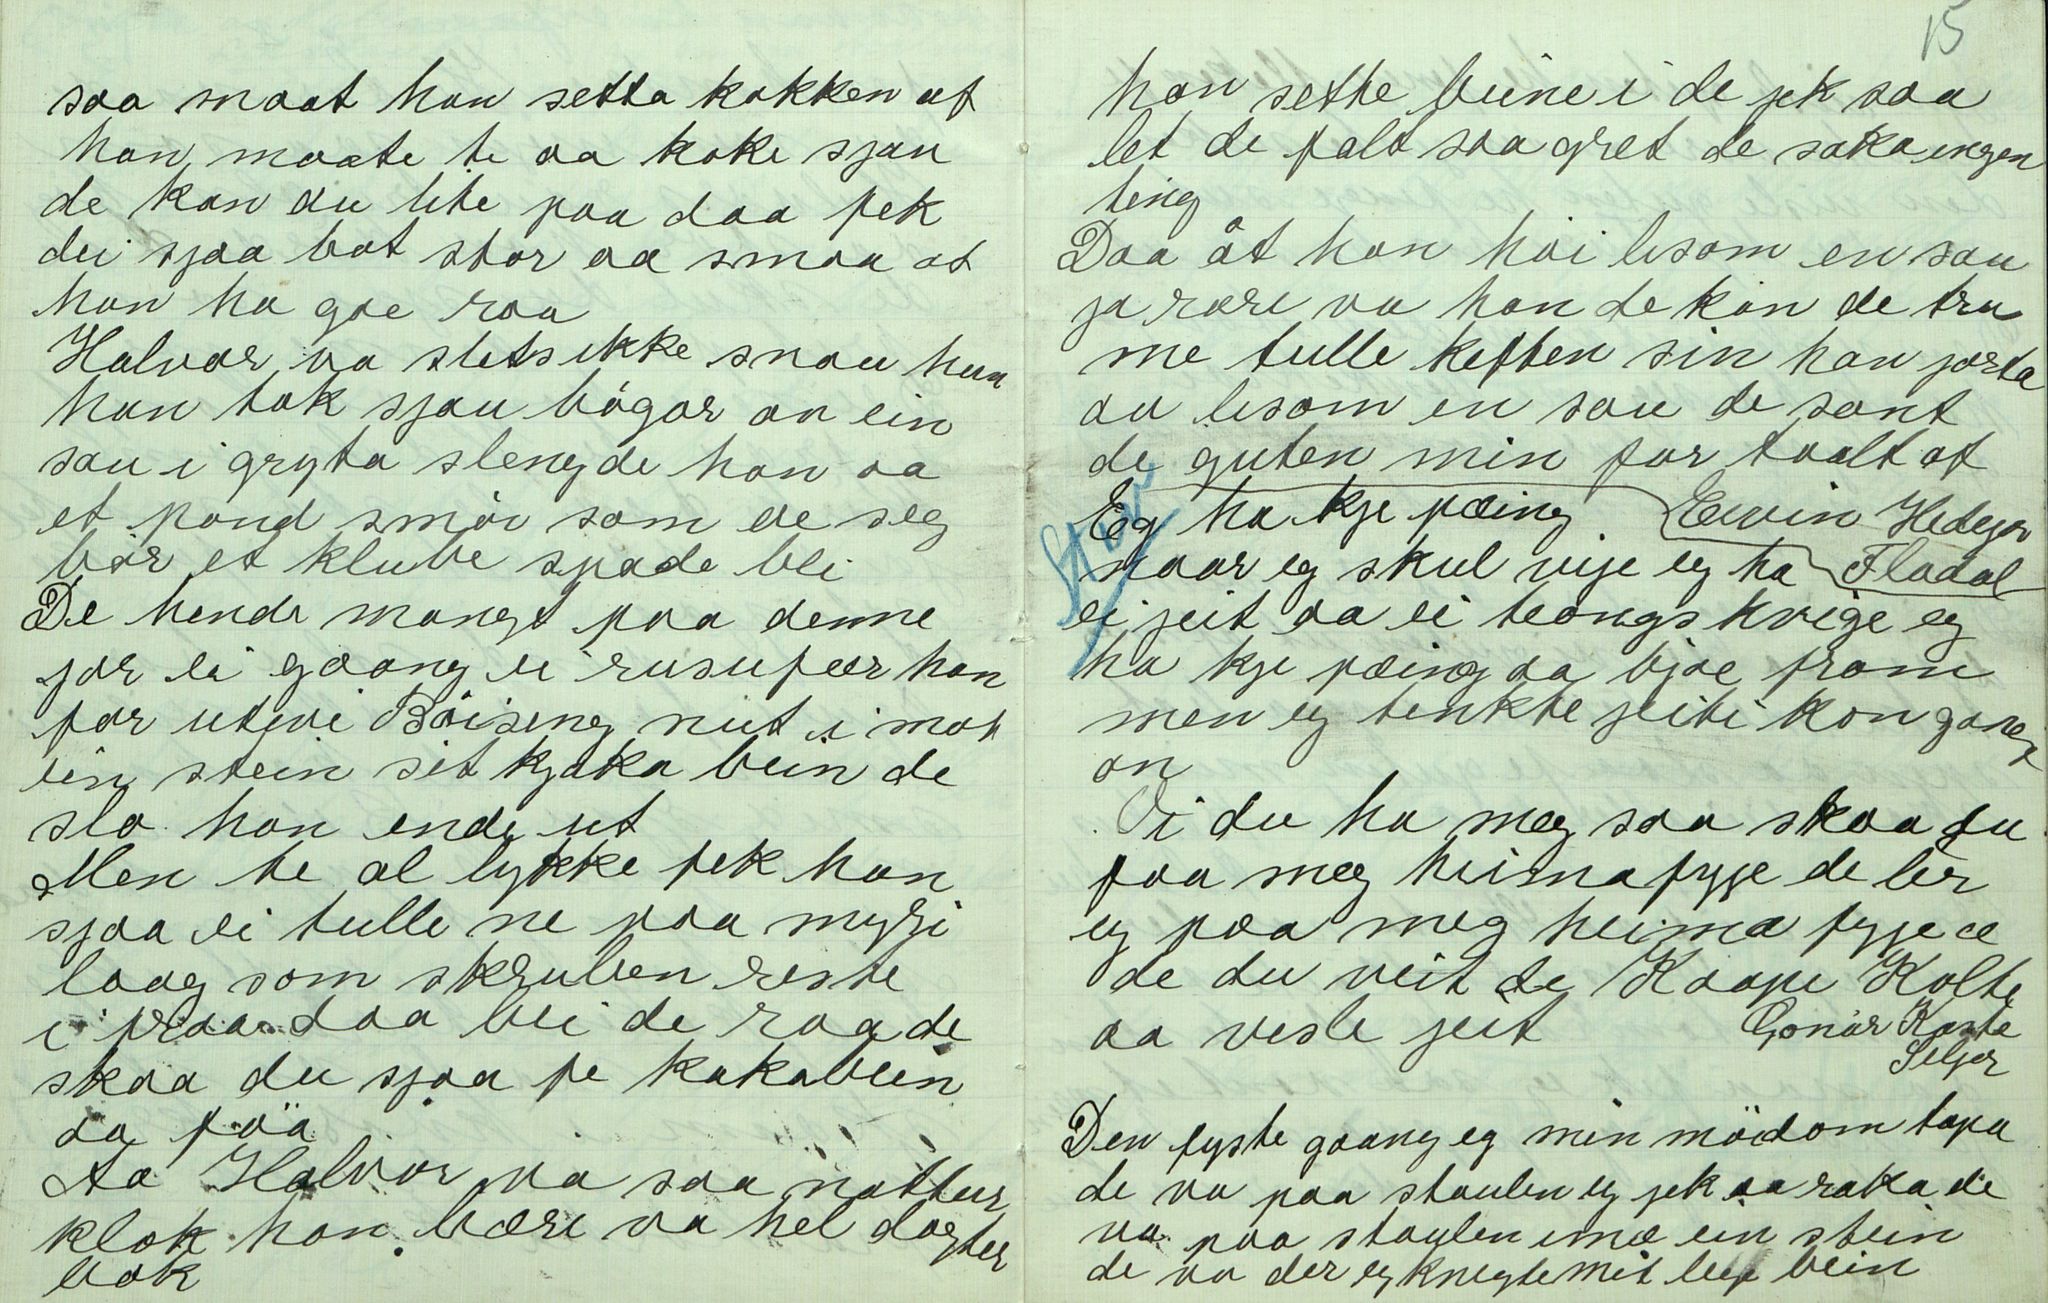 saa maat han setta kokken af
han maate te aa koke sjau
de kan du lite paa daa fek
dei sjaa bot stor aa smaa at
han ha goe raa
Halvor va slets ikke snau hun
han tok sjau bógar an ein
sau i gryta slengde han aa
et pond smór som de seg
bór et klube spade bli
De hende mangt paa denne
jor ei gaang ei rusufær han
for utfvi Bóiseng nut i mot
ein stein sit kjaka bein de
slo han ende ut
Men te al lykke fek han
sjaa ei tulle ne paa myrji
laag som skruben reste
i fraa daa blei de raa de
skaa du sjaa fe kakabein
da faa
Aa Halvor va saa nattur
klok han bære va hel dogter
bok
15
han sette beine i de jek saa
let de falt saa gret de saka ingen
ting
Daa åt han hói lisom en sau
ja rare va han de kan de tru
me tulle keften sin han jorta
au lisom en sau de sant
de guten min for taalt af
Eg ha kje pæing Ervin Hedejor
naar eg skul vije eg ha Flodal
ei jeit aa ei teongskvige eg
ha kje pæing aa bjoe fram
men eg tenkte jeiti kan gange
an
Vi du ha meg saa skaa du
faa meg heimafyje de ber
eg paa meg heima fyje æ
de du veit de Kaape Kolte
aa vesle jeit Gonár Raste
Seljor
Den fyste gaang eg min módom tapa
de va paa staulen eg jek aa raka de
va paa staulen imæ ein stein
de va der eg knegte mit lege bein